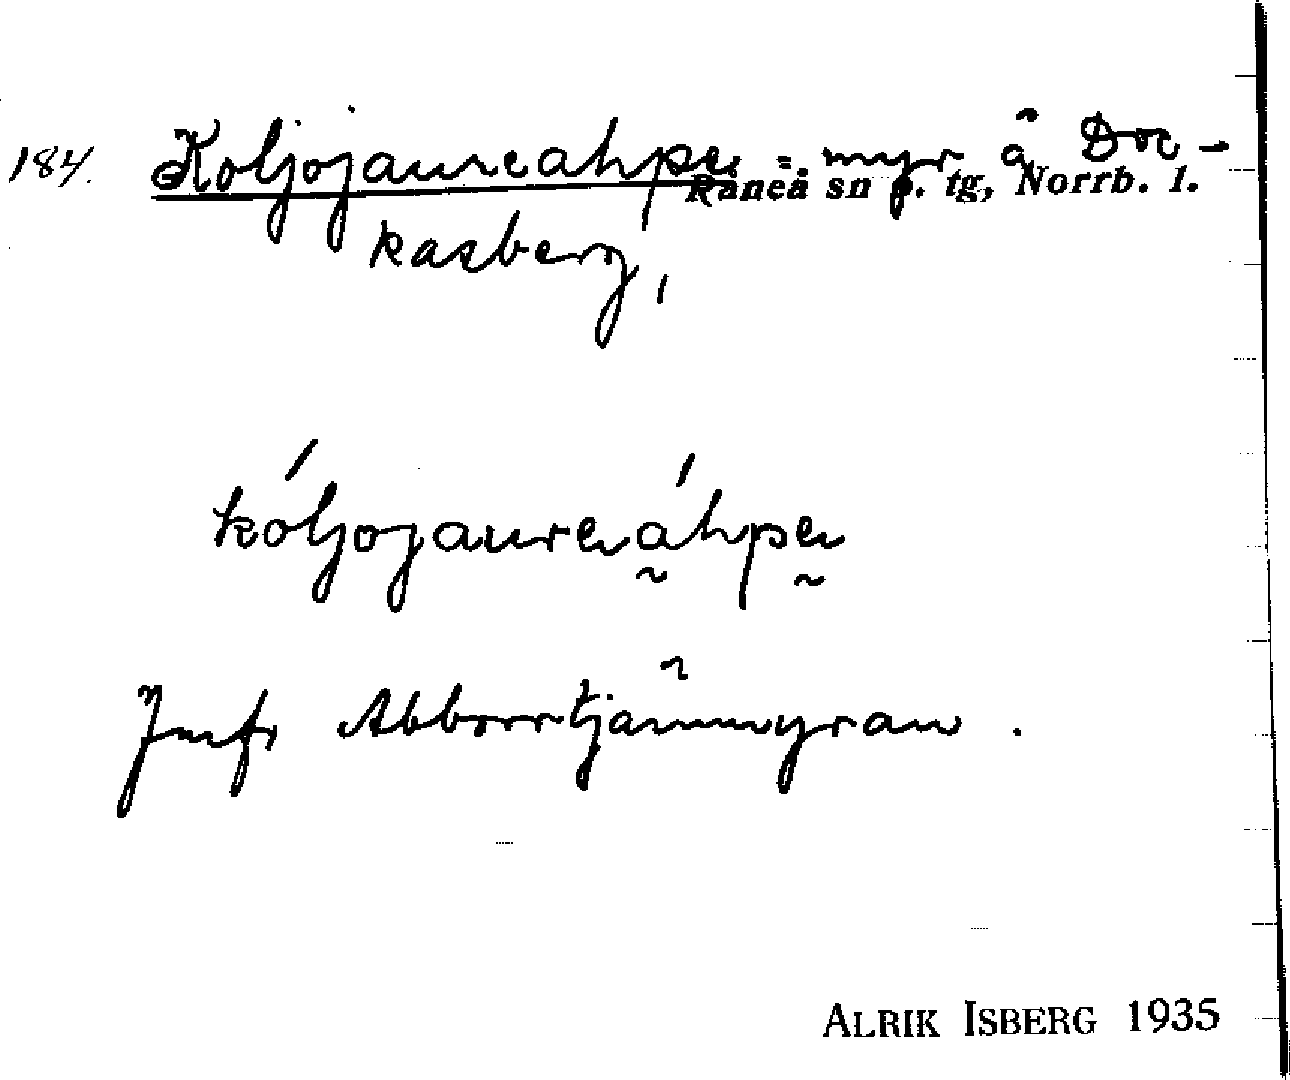 184. Koljojaureahpe =. myr å Doc-
Råneå sn p. tg, Norrb. l.
kasberg,
kóljojaureáhpe
Jmfr Abborrtjärnmyran.
ALRIK ISBERG 1935